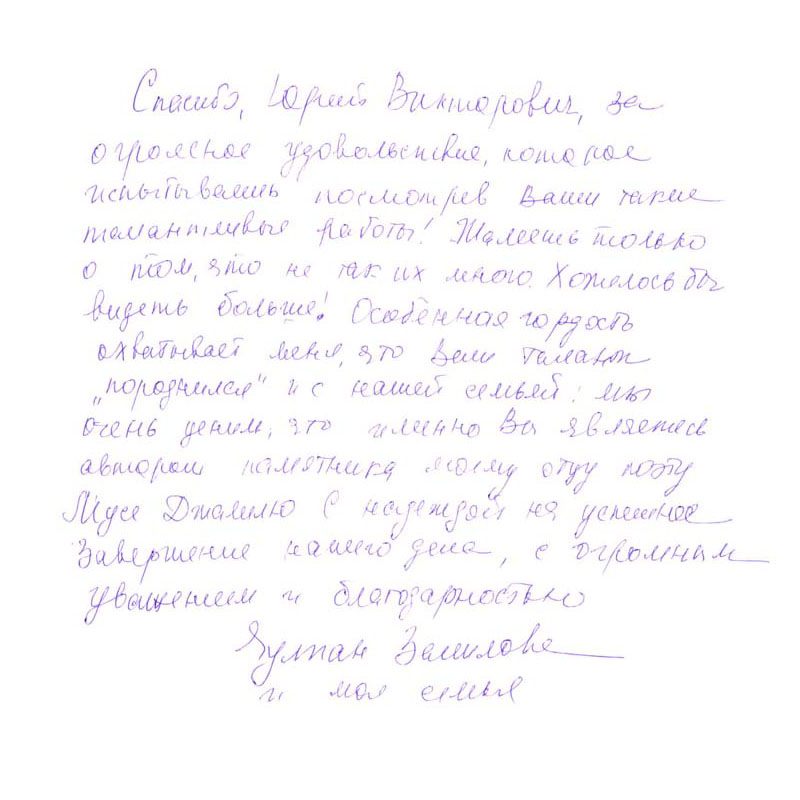 Спасибо, Юрий Викторович, за
огромное удовольствие, которое
испытываешь посмотрев Ваши такие
талантливые работы! Жалеешь только
о том, что не так их много. Хотелось бы
видеть больше! Особенная гордость
охватывает меня, что Ваш талант
„породнился“ и с нашей семьёй: мы
очень ценим, что именно Вы являетесь
автором памятника моему отцу поэту
Мусе Джалилю С надеждой на успешное
Завершение нашего дела, с огромным
уважением и благодарностью
Чулпан Залилова
и моя семья